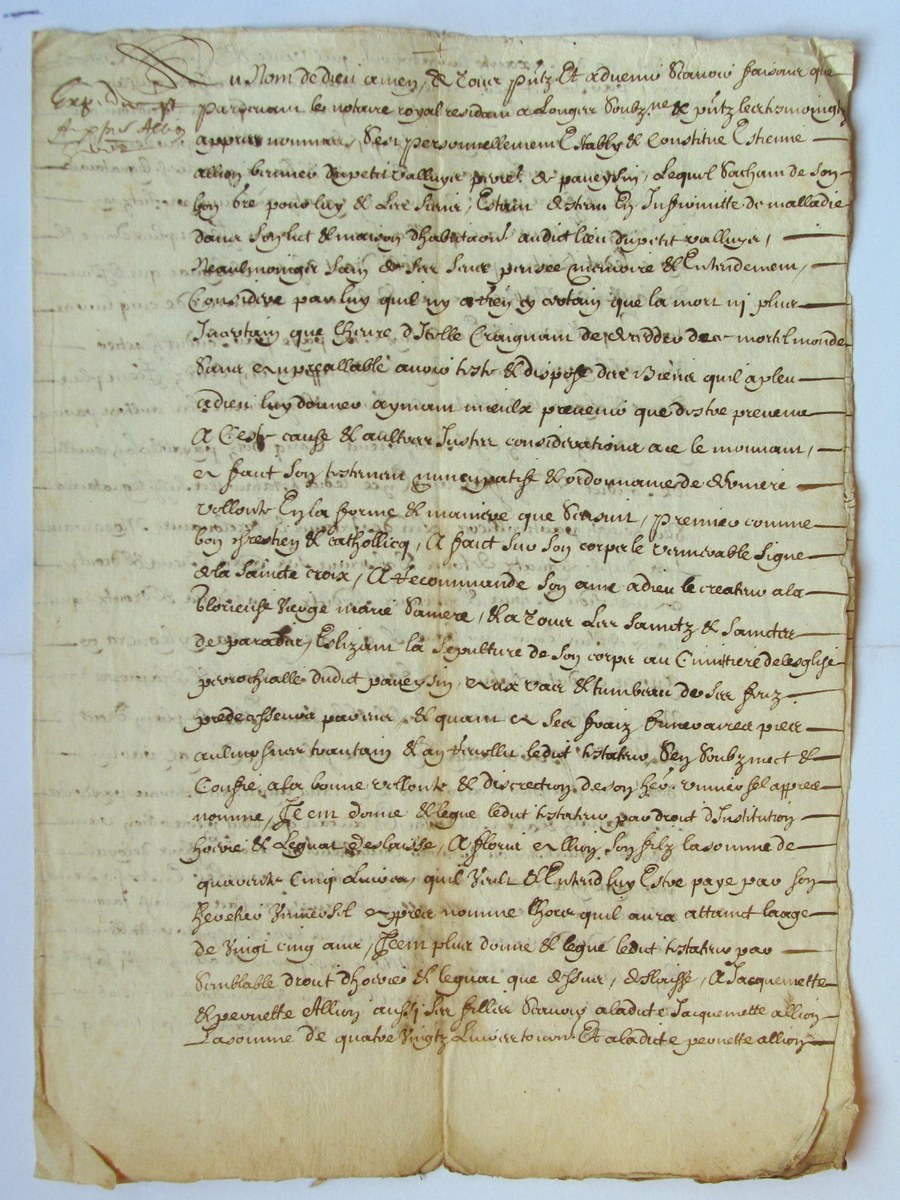 Au Nom de dieu amen, & a Tous p̃ñtz Et advenir Scavoir faisons que
pardevant le notaire royal residant a Longes Soubz.ne & p̃ñtz les tesmoingtz
appres nommes, Sest personnellement Estably & Constitue Estienne
allion du petit valluys & paveysin, Lequel Sachant de son
bon gre pour luy & Les Siens, Estant detenu En Infirmitte de malladie
dans son lict & maison d'habitaon audict lieu du petit valluys,
Neaulmoinges Sain de ses Sens pensee memoire & Entendement,
Considere par luy quil ny a rien cy certain que la mort ny plus
Incertain que lheure d'Icelle Craignant de deceder de ce mortel monde
Sans au preallable avoir teste & dispose des Biens quil a pleu
a dieu luy donner aymant mieulx prevenir que destre prevenu
A Ceste cause & aultres Justes considerations a ce le mouvant,
a faict Son testement nuncupatif & ordonnance de derniere
vollonte En la forme & maniere que Sensuit, premier comme
bon chrestien & catholicq, A faict sur son corps le venerable Signe
de la Saincte croix, A Recommande son ame a dieu le createur a la
Glorieuse vierge marie Sa mere, & a Tous Les Sainctz & Sainctes
de paradis, Eslizant la sepulture de son corps au Cimitiere de leglise
parrochialle dudict paveysin, & tumbeau de ses feuz
predecesseurs & quant a ses fraiz funeraires
aulmosnes & ledict testateur Sen Soubzmect &
Confie a la bonne vollonte & discrection de son hér. universel appres
nomme, Item donne & legue ledict testateur par droit d'Institution
hoirie & Legnat delaisse, A floris allion son filz la somme de
quarente Cinq Livres, quil Veult & Entend luy Estre paye par son
heretier Universel appres nomme lhors quil aura attainct laage
de Vingt cinq ans, Item plus donne & legue ledict testateur par
Semblable droit dhoirie & legnat que dessus, delaisse, A Jacquemette
& peronette Allion aussi ses filles Scavoir a ladicte Jacquemette allion
La somme de quatre vingtz Livres tourn. Et a ladicte peronette allion